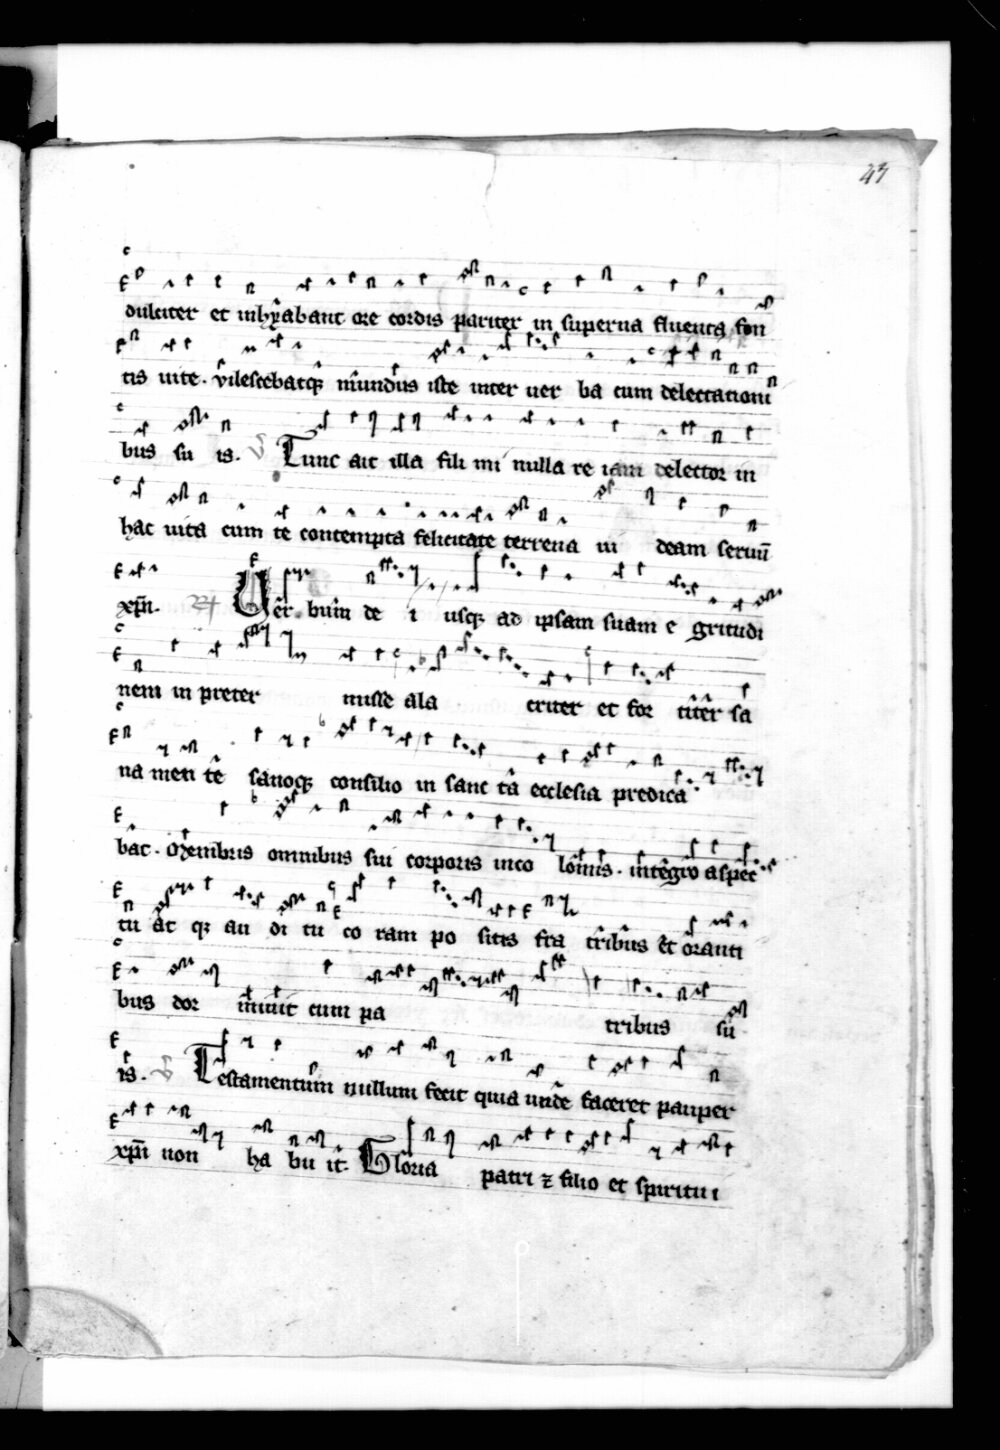 43
dulciter et inhyabant ore cordis pariter in superna fluenta fon
tis uite. vilescebatqȝ mundus iste inter uer ba cum delectationi
bus su is. V Tunc ait illa fili mi nulla re iam delector in
hac uita cum te contempta felicitate terrena ui deam seruū
xpīn. R Uer bum de i usqȝ ad ipsam suam e gritudi
nem in preter misse ala criter et for titer sa
na men te sanoqȝ consilio in sanc ta ecclesia predica
bat. Membris omnibus sui corporis inco lomis. integro aspec
tu at qȝ au di tu co ram po sitis fra tribus et oranti
bus dor miuit cum pa tribus su
is. V Testamentum nullum fecit quia unde faceret pauper
xpīn non ha bu it. Gloria patri ⁊ filio et spiritu i